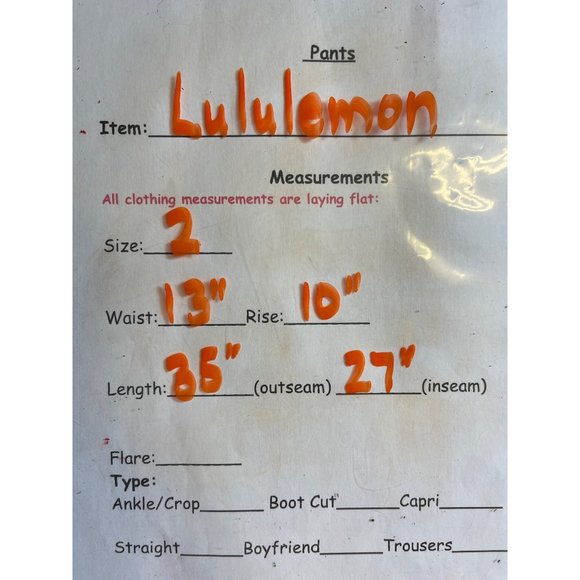 Pants
Item: Lululemon
Measurements
All clothing measurements are laying flat:
Size: 2
Waist: 13" Rise: 10"
Length: 35" (outseam) 27" (inseam)
Flare:
Type:
Ankle/Crop Boot Cut Capri
Straight Boyfriend Trousers